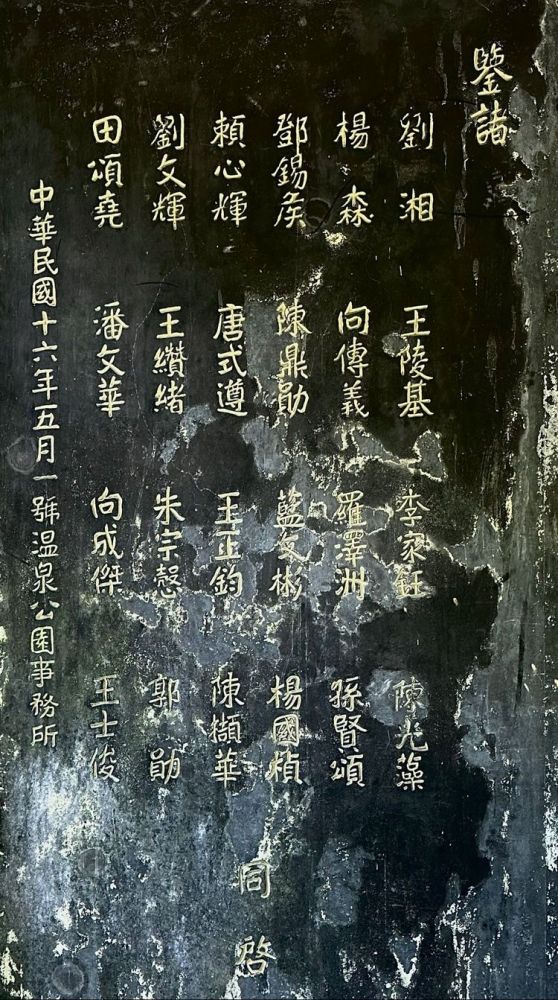 鑒諸
劉湘　王陵基　李家鈺　陳光藻
楊森　向傳義　羅澤洲　孫賢頌
鄧錫侯　陳鼎勛　藍文彬　楊國楨
賴心輝　唐式遵　王正鈞　陳擷華　同啓
劉文輝　王纘緒　朱宗慤　郭勛
田頌堯　潘文華　向成傑　王士俊
中華民國十六年五月一號溫泉公園事務所